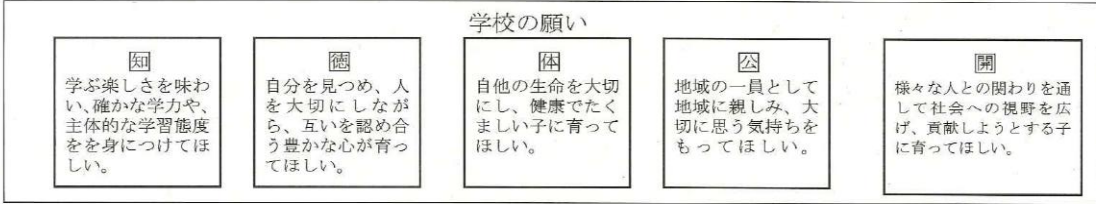 学校の願い
知
学ぶ楽しさを味わ
い、確かな学力や、
主体的な学習態度
をを身につけてほ
しい。
徳
自分を見つめ、人
を大切にしなが
ら、互いを認め合
う豊かな心が育っ
てほしい。
体
自他の生命を大切
にし、健康でたく
ましい子に育って
ほしい。
公
地域の一員として
地域に親しみ、大
切に思う気持ちを
もってほしい。
開
様々な人との関わりを通
して社会への視野を広
げ、貢献しようとする子
に育ってほしい。